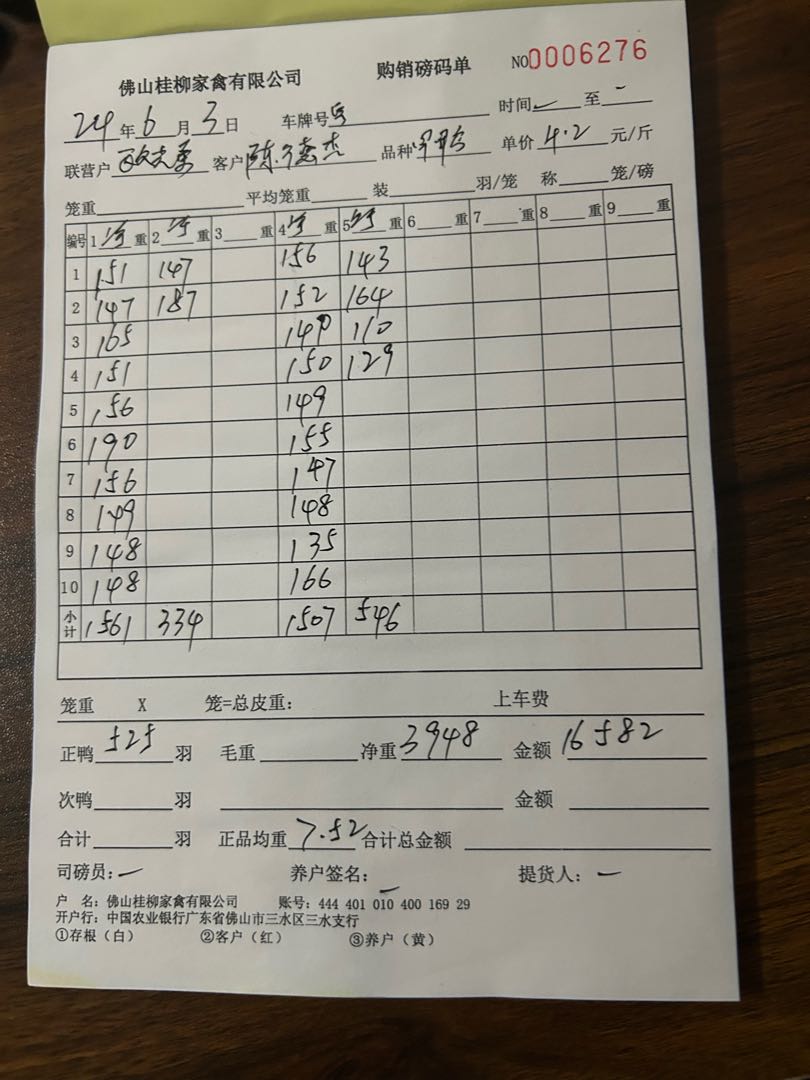 佛山桂柳家禽有限公司 购销磅码单 NO0006276
24年6月3日 车牌号 时间 一 至 一
联营户 客户 陈德杰 品种 单价 4.2 元/斤
笼重 平均笼重 装 羽/笼 称 笼/磅
编号 1 重 2 重 3 重 4 重 5 重 6 重 7 重 8 重 9 重
1 151 147 156 143
2 147 187 152 164
3 165 149 110
4 151 150 129
5 156 149
6 190 155
7 156 147
8 149 148
9 148 135
10 148 166
小计 1561 334 1507 546
笼重 X 笼=总皮重: 上车费
正鸭 525 羽 毛重 净重 3948 金额 16582
次鸭 羽 金额
合计 羽 正品均重 7.52 合计总金额
司磅员: 一 养户签名: 一 提货人: 一
户 名: 佛山桂柳家禽有限公司 账号: 444 401 010 400 169 29
开户行: 中国农业银行广东省佛山市三水区三水支行
①存根(白) ②客户(红) ③养户(黄)